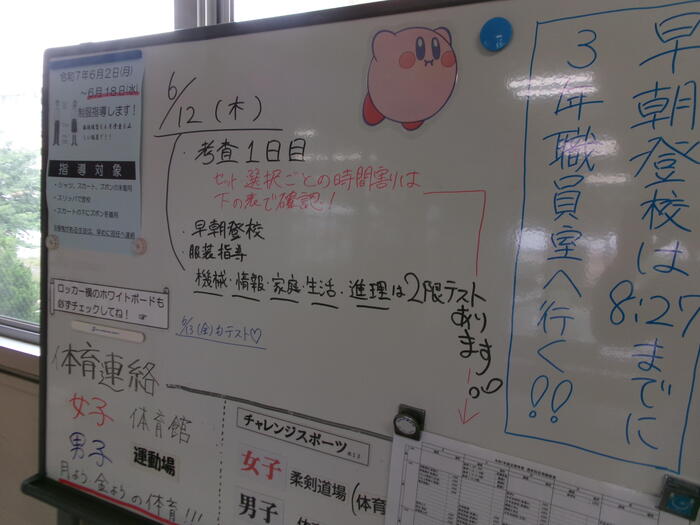 令和7年6月2日(月)
～6月18日(水)
制服指導します!
指導対象
・シャツ、スカート、ズボンの未着用
・スリッパで登校
・スカートの下にズボンを着用
6/12(木)
・考査1日目
セット選択ごとの時間割は
下の表で確認!
・早朝登校
服装指導
機械・情報・家庭・生活・進理は2限テスト
あります
6/13(金)もテスト♡
早朝登校は8:27までに
3年職員室へ行く!!
ロッカー横のホワイトボードも
必ずチェックしてね!
体育連絡
女子 体育館
男子 運動場
月よう金ようの体育!!!
チャレンジスポーツ
女子 柔剣道場(体育
男子